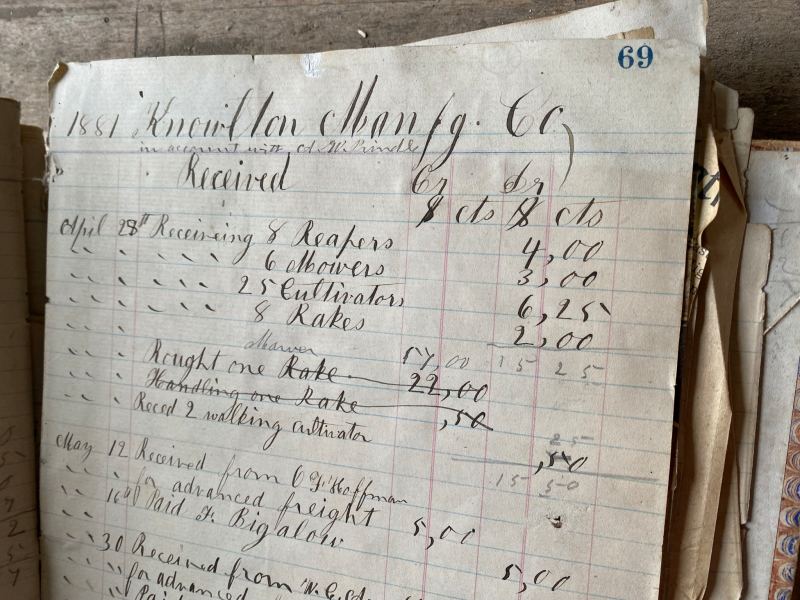 69
1881 Knowlton Manfg. Co
in account with A. W. Prindle
Received Cr Dr
$ cts $ cts
April 28th Receiveing 8 Reapers 4,00
" " " " 6 Mowers 3,00
" " " " 25 Cultivators 6,25
" " " " 8 Rakes 2,00
Mower 15 25
" " " Bought one Rake 57,00 22,00
" " " Handling one Rake ,50
" " " Reced 2 walking cultivator ,50
25
May 12 Received from O F Hoffman 15 50
" " for advanced freight 5,00
" 16th Paid F. Bigalow 5,00
" 30 Received from
" " for advanced
" " Paid